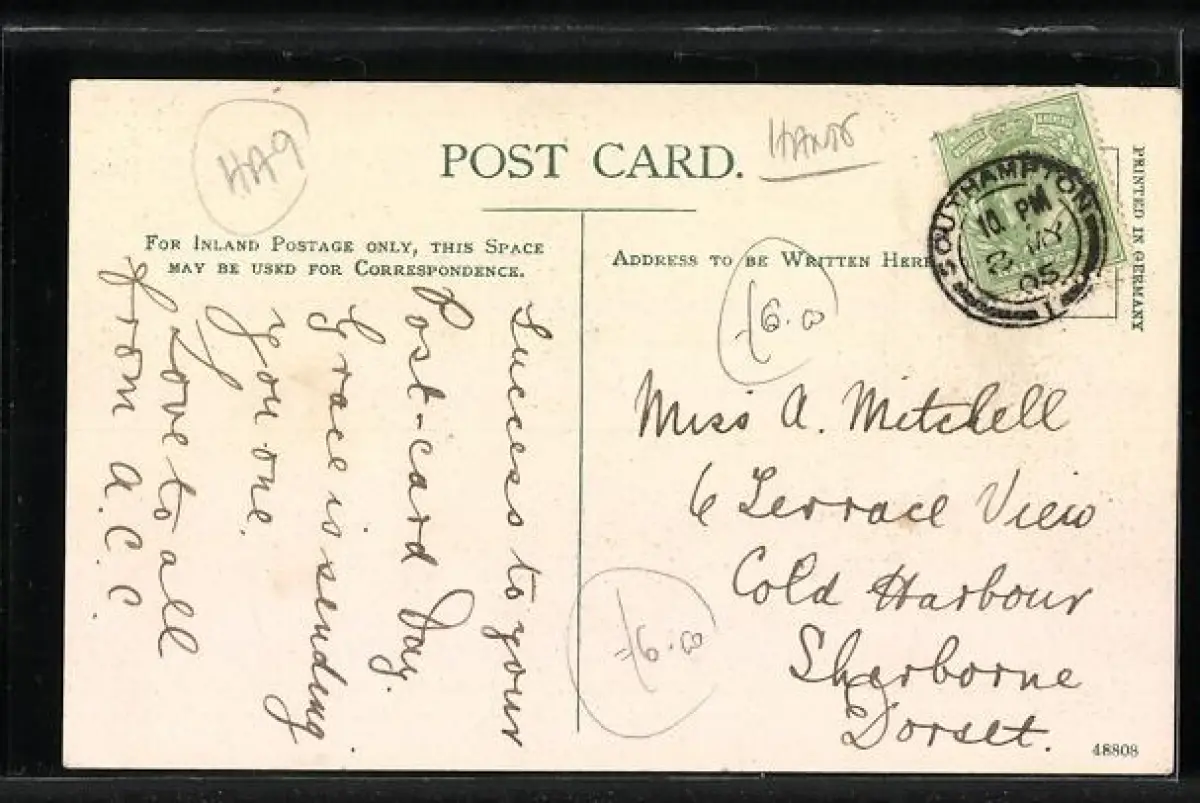 HA9
POST CARD.
HANTS
FOR INLAND POSTAGE ONLY, THIS SPACE
MAY BE USED FOR CORRESPONDENCE.
ADDRESS TO BE WRITTEN HERE
PRINTED IN GERMANY
SOUTHAMPTON
10 PM
MY
05
1
Success to your
Post-card Day.
Grace is sending
you one.
Love to all
from A.C.C
6.00
Miss A. Mitchell
6 Terrace View
Cold Harbour
Sherborne
Dorset.
6.00
48808